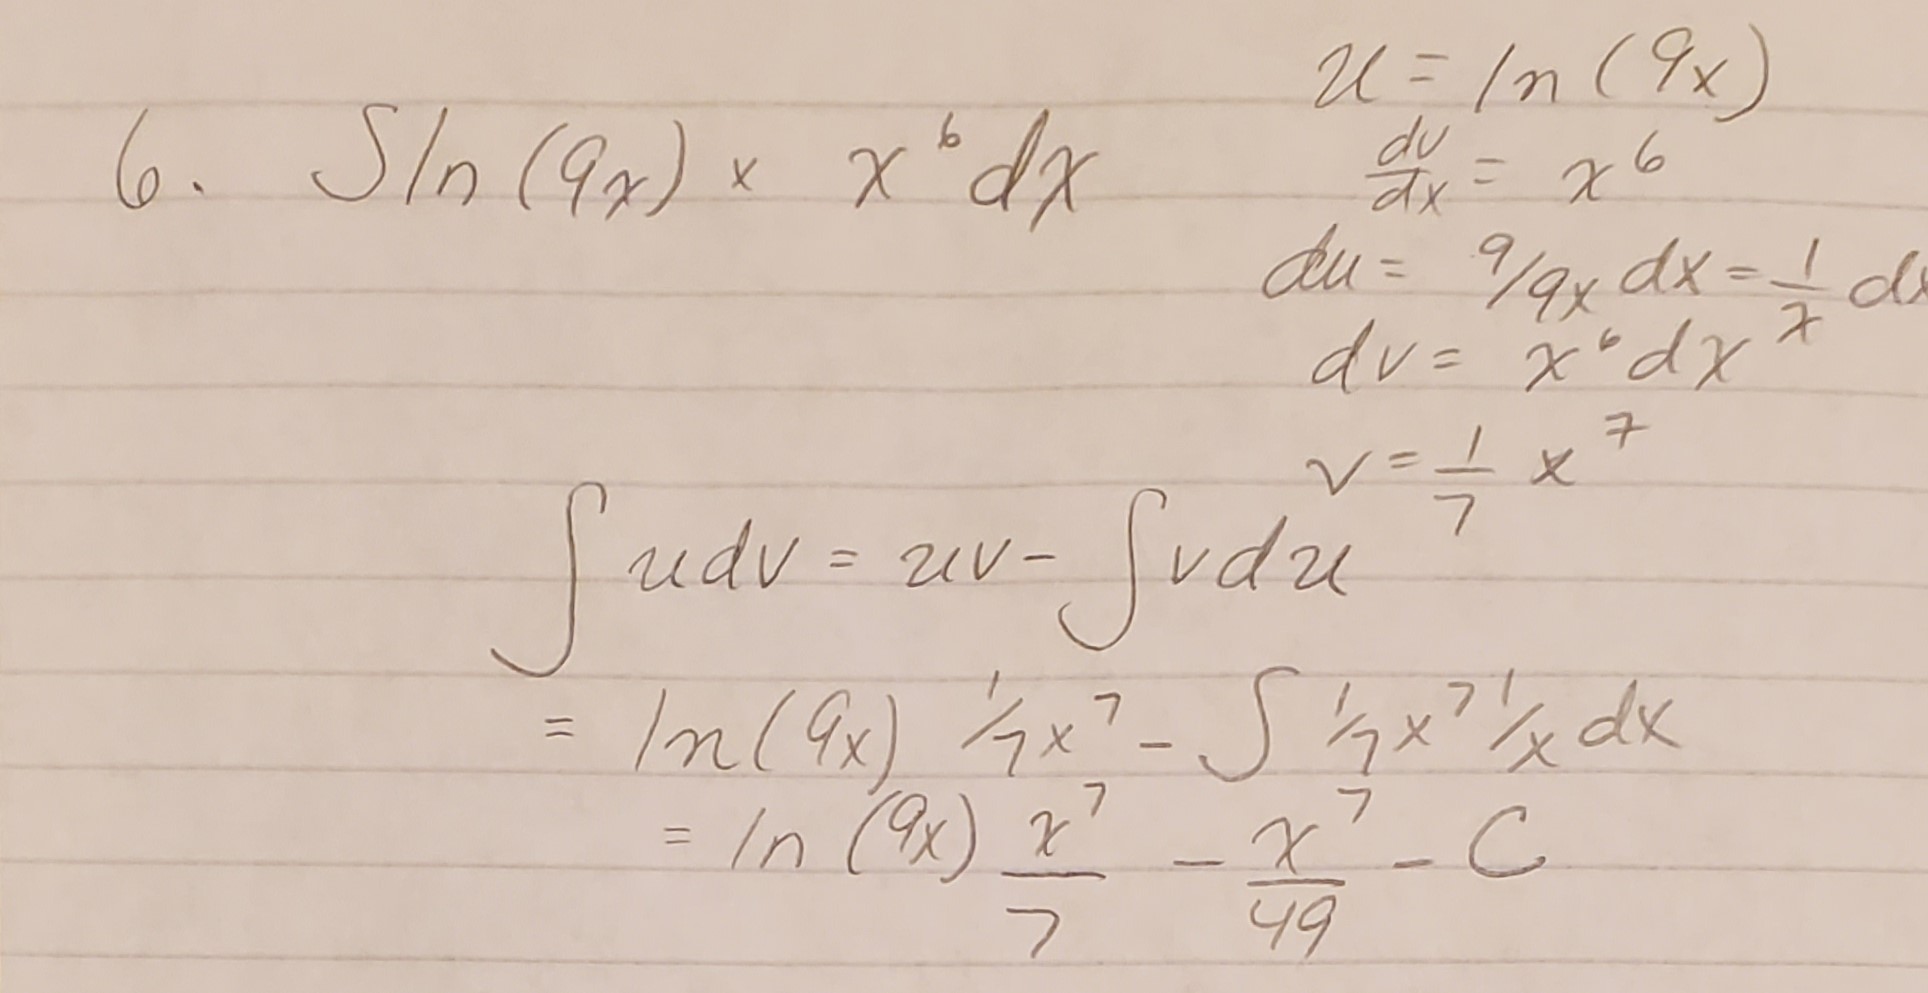 u = ln(9x)
6. ∫ln(9x) × x⁶dx
dv/dx = x⁶
du = 9/9x dx = 1/x dx
dv = x⁶dx
v = 1/7 x⁷
∫udv = uv - ∫vdu
= ln(9x) 1/7x⁷ - ∫1/7x⁷ 1/x dx
= ln(9x) x⁷/7 - x⁷/49 - C